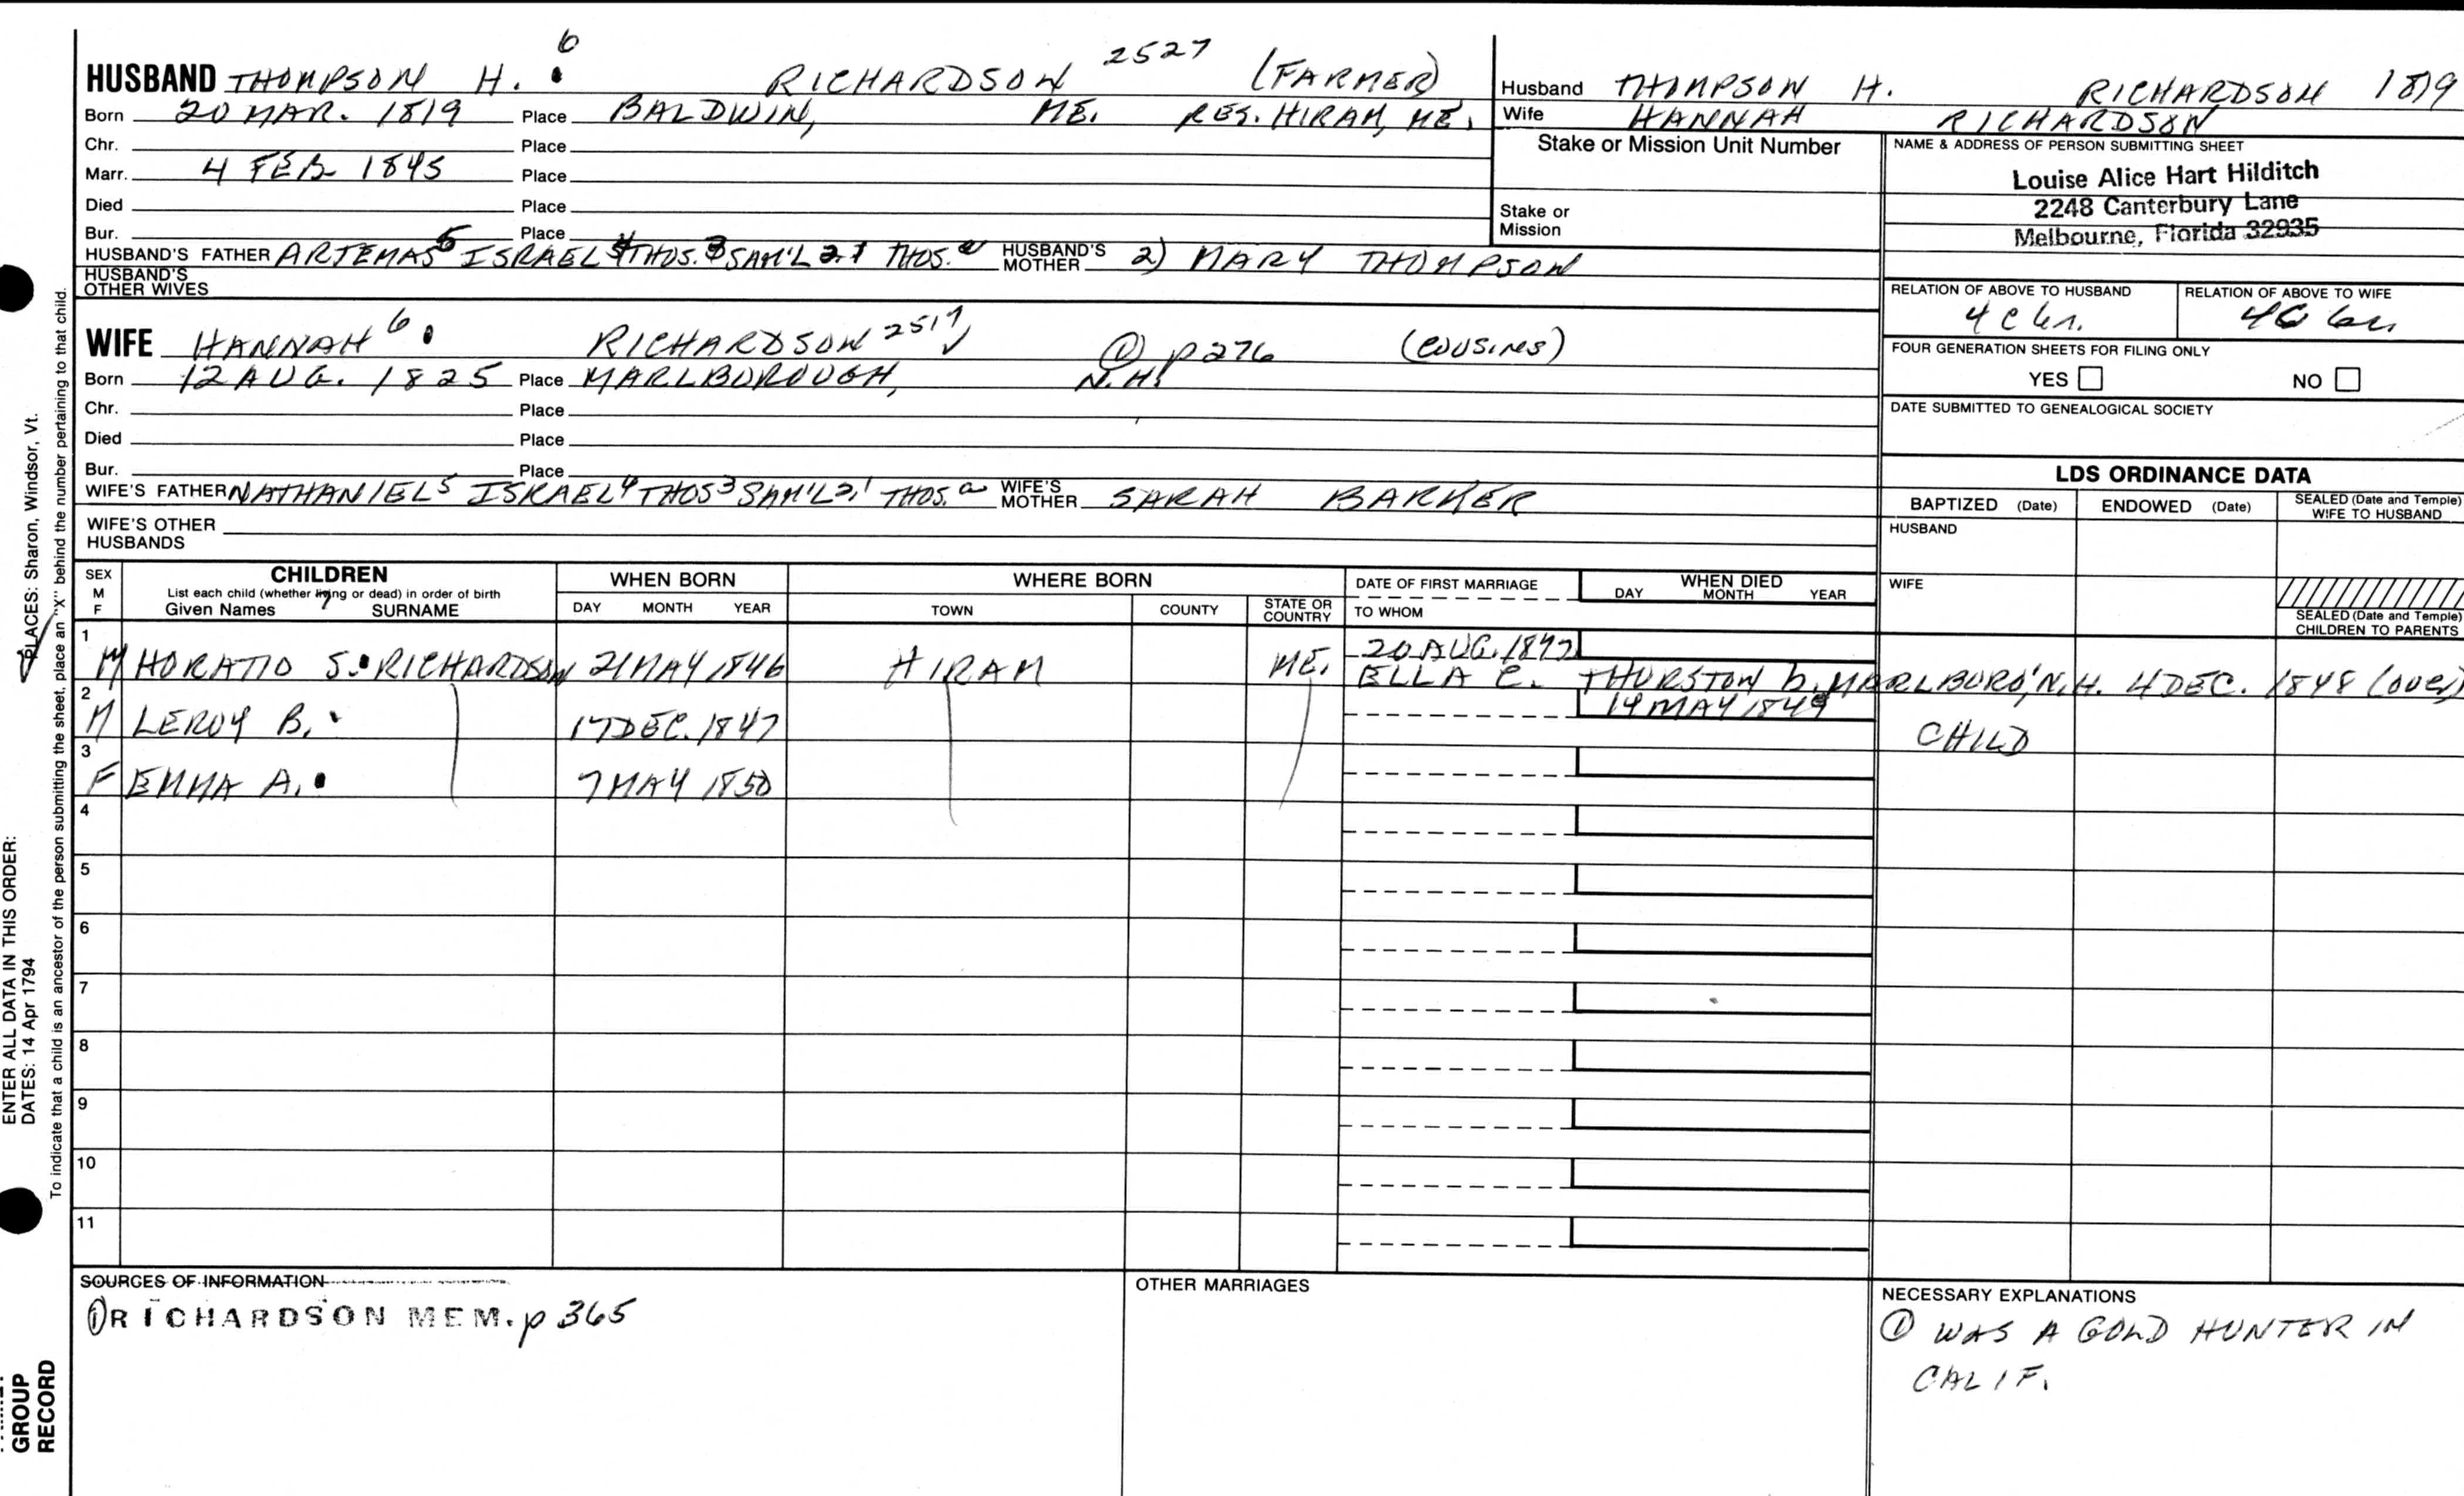 6
HUSBAND THOMPSON H. RICHARDSON 2527 (FARMER)
Born 20 MAR. 1819 Place BALDWIN, ME. RES. HIRAM, ME.
Chr. Place
Marr. 4 FEB 1845 Place
Died Place
Bur. Place
HUSBAND'S FATHER ARTEMAS5 ISRAEL4 THOS.3 SAM'L 2,1 THOS.a HUSBAND'S MOTHER 2) MARY THOMPSON
HUSBAND'S OTHER WIVES
WIFE HANNAH6 RICHARDSON 2517 @ p276 (COUSINS)
Born 12 AUG. 1825 Place MARLBOROUGH, N.H.
Chr. Place
Died Place
Bur. Place
WIFE'S FATHER NATHANIEL5 ISRAEL4 THOS3 SAM'L2,1 THOS.a WIFE'S MOTHER SARAH BARKER
WIFE'S OTHER HUSBANDS
Husband THOMPSON H. RICHARDSON 1819
Wife HANNAH RICHARDSON
Stake or Mission Unit Number
Stake or Mission
NAME & ADDRESS OF PERSON SUBMITTING SHEET
Louise Alice Hart Hilditch
2248 Canterbury Lane
Melbourne, Florida 32935
RELATION OF ABOVE TO HUSBAND RELATION OF ABOVE TO WIFE
FOUR GENERATION SHEETS FOR FILING ONLY
YES NO
DATE SUBMITTED TO GENEALOGICAL SOCIETY
LDS ORDINANCE DATA
BAPTIZED (Date) ENDOWED (Date) SEALED (Date and Temple) WIFE TO HUSBAND
HUSBAND
WIFE
SEALED (Date and Temple) CHILDREN TO PARENTS
SEX M F CHILDREN WHEN BORN WHERE BORN DATE OF FIRST MARRIAGE WHEN DIED
List each child (whether living or dead) in order of birth
Given Names 7 SURNAME DAY MONTH YEAR TOWN COUNTY STATE OR COUNTRY TO WHOM DAY MONTH YEAR
1 20 AUG. 1872
M HORATIO S. RICHARDSON 21 MAY 1846 HIRAM ME. ELLA C. THURSTON b. MARLBORO', N.H. 4 DEC. 1848 (over)
2 14 MAY 1849
M LEROY B. 17 DEC. 1847 CHILD
3
F EMMA A. 7 MAY 1850
4
5
6
7
8
9
10
11
SOURCES OF INFORMATION
① RICHARDSON MEM. p 365
OTHER MARRIAGES
NECESSARY EXPLANATIONS
① WAS A GOLD HUNTER IN
CALIF.
PLACES: Sharon, Windsor, Vt.
To indicate that a child is an ancestor of the person submitting the sheet, place an "X" behind the number pertaining to that child.
ENTER ALL DATA IN THIS ORDER:
DATES: 14 Apr 1794
GROUP
RECORD